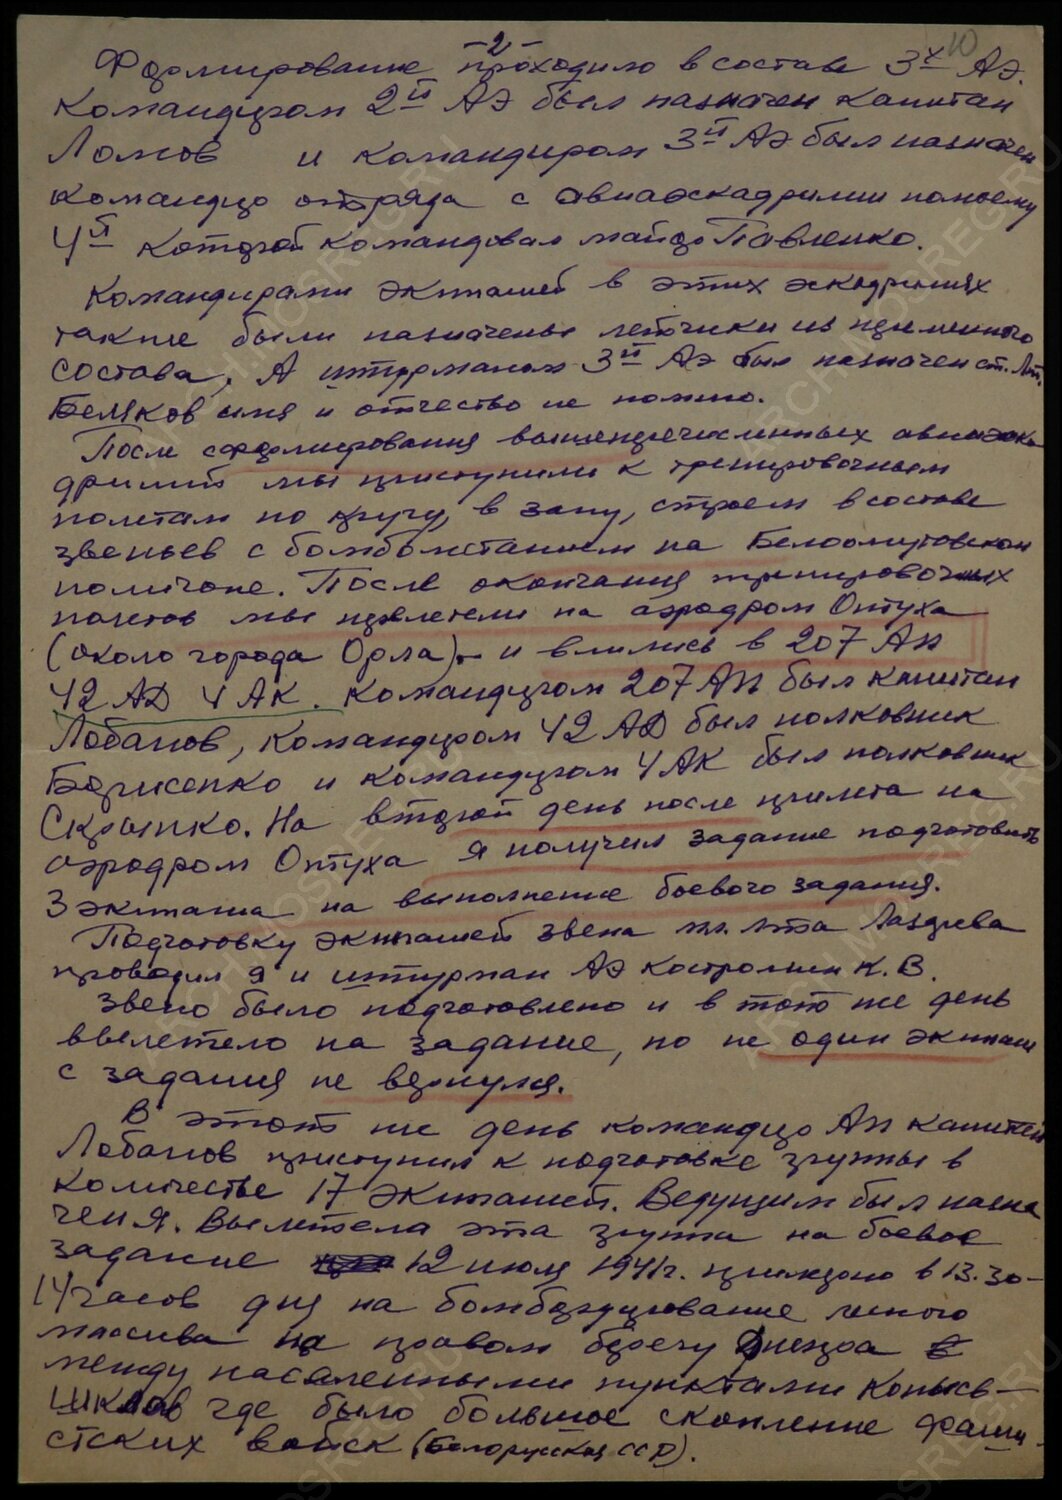 -2-
10
Формирование проходило в составе 3х АЭ.
Командиром 2й АЭ был назначен капитан
Ломов и командиром 3й АЭ был назначен
командир отряда с авиаэскадрилии помоему
4й которой командовал майор Павленко.
Командирами экипажей в этих эскадрилиях
также были назначены летчики из прежнего
состава. А штурманом 3й АЭ был назначен ст. Лт.
Беляков имя и отчество не помню.
После сформирования вышеперечисленных авиаэска
дрилий мы приступили к тренировочным
полетам по кругу, в зону, строем в составе
звеньев с бомбометанием на Белоомутовском
полигоне. После окончания тренировочных
полетов мы прилетели на аэродром Оптуха
(около города Орла) и влились в 207 АП
42 АД 4 АК. Командиром 207 АП был капитан
Лобанов, командиром 42 АД был полковник
Борисенко и командиром 4 АК был полковник
Скрыпко. На второй день после прилета на
аэродром Оптуха я получил задание подготовить
3 экипажа на выполнение боевого задания.
Подготовку экипажей звена мл. л-та
проводил я и штурман АЭ Костромин К. В.
Звено было подготовлено и в тот же день
вылетело на задание, но не один экипаж
с задания не вернулся.
В этот же день командир АП капитан
Лобанов приступил к подготовке группы в
количестве 17 экипажей. Ведущим был назна
чен я. Вылетела эта группа на боевое
задание 12 июля 1941г. примерно в 13.30-
14 часов дня на бомбардирование лесного
массива на правом берегу Днепра
между населенными пунктами Копысь-
Шклов где было большое скопление фаши-
стских войск (Белорусская ССР).
ARCH.MOSREG.RU